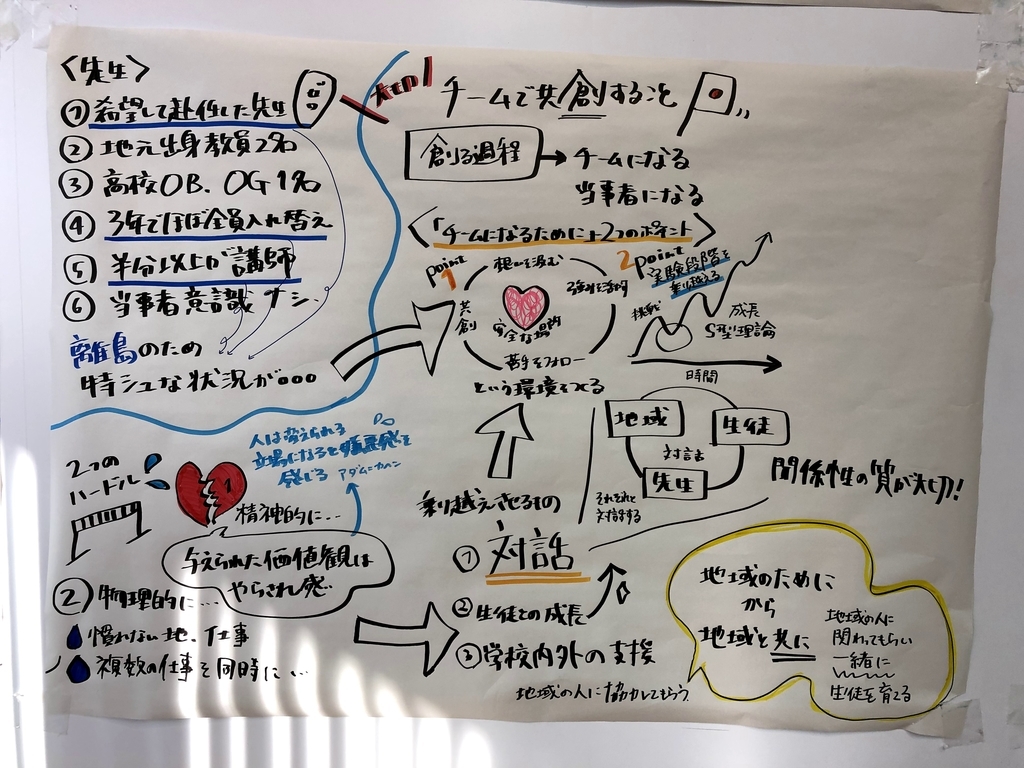 〈先生〉
① 希望して赴任した先生
② 地元出身教員2名
③ 高校OB、OG1名
④ 3年でほぼ全員入れ替え
⑤ 半分以上が講師
⑥ 当事者意識ナシ
離島のため
特シュな状況が…
2つの
ハードル
1
精神的に…
人は変えられる
立場になると嫌悪感を
感じる アダムカヘン
与えられた価値観は
やらされ感
② 物理的に…
慣れない地、仕事
複数の仕事を同時に…
チームで共創すること
創る過程
→ チームになる
当事者になる
〈「チームになるために」2つのポイント〉
point
1
想いを汲む
強みを活用
共創
安全な場所
苦手をフォロー
という環境をつくる
2 point
実験段階を
乗り越える
挑戦
成長
S型理論
時間
地域
生徒
対話
先生
それぞれと
対話する
関係性の質が大切!
乗り越えさせるもの
① 対話
② 生徒との成長
③ 学校内外の支援
地域の人に協力してもらう
地域のために
から
地域と共に
地域の人に
関わってもらい
一緒に
生徒を育てる